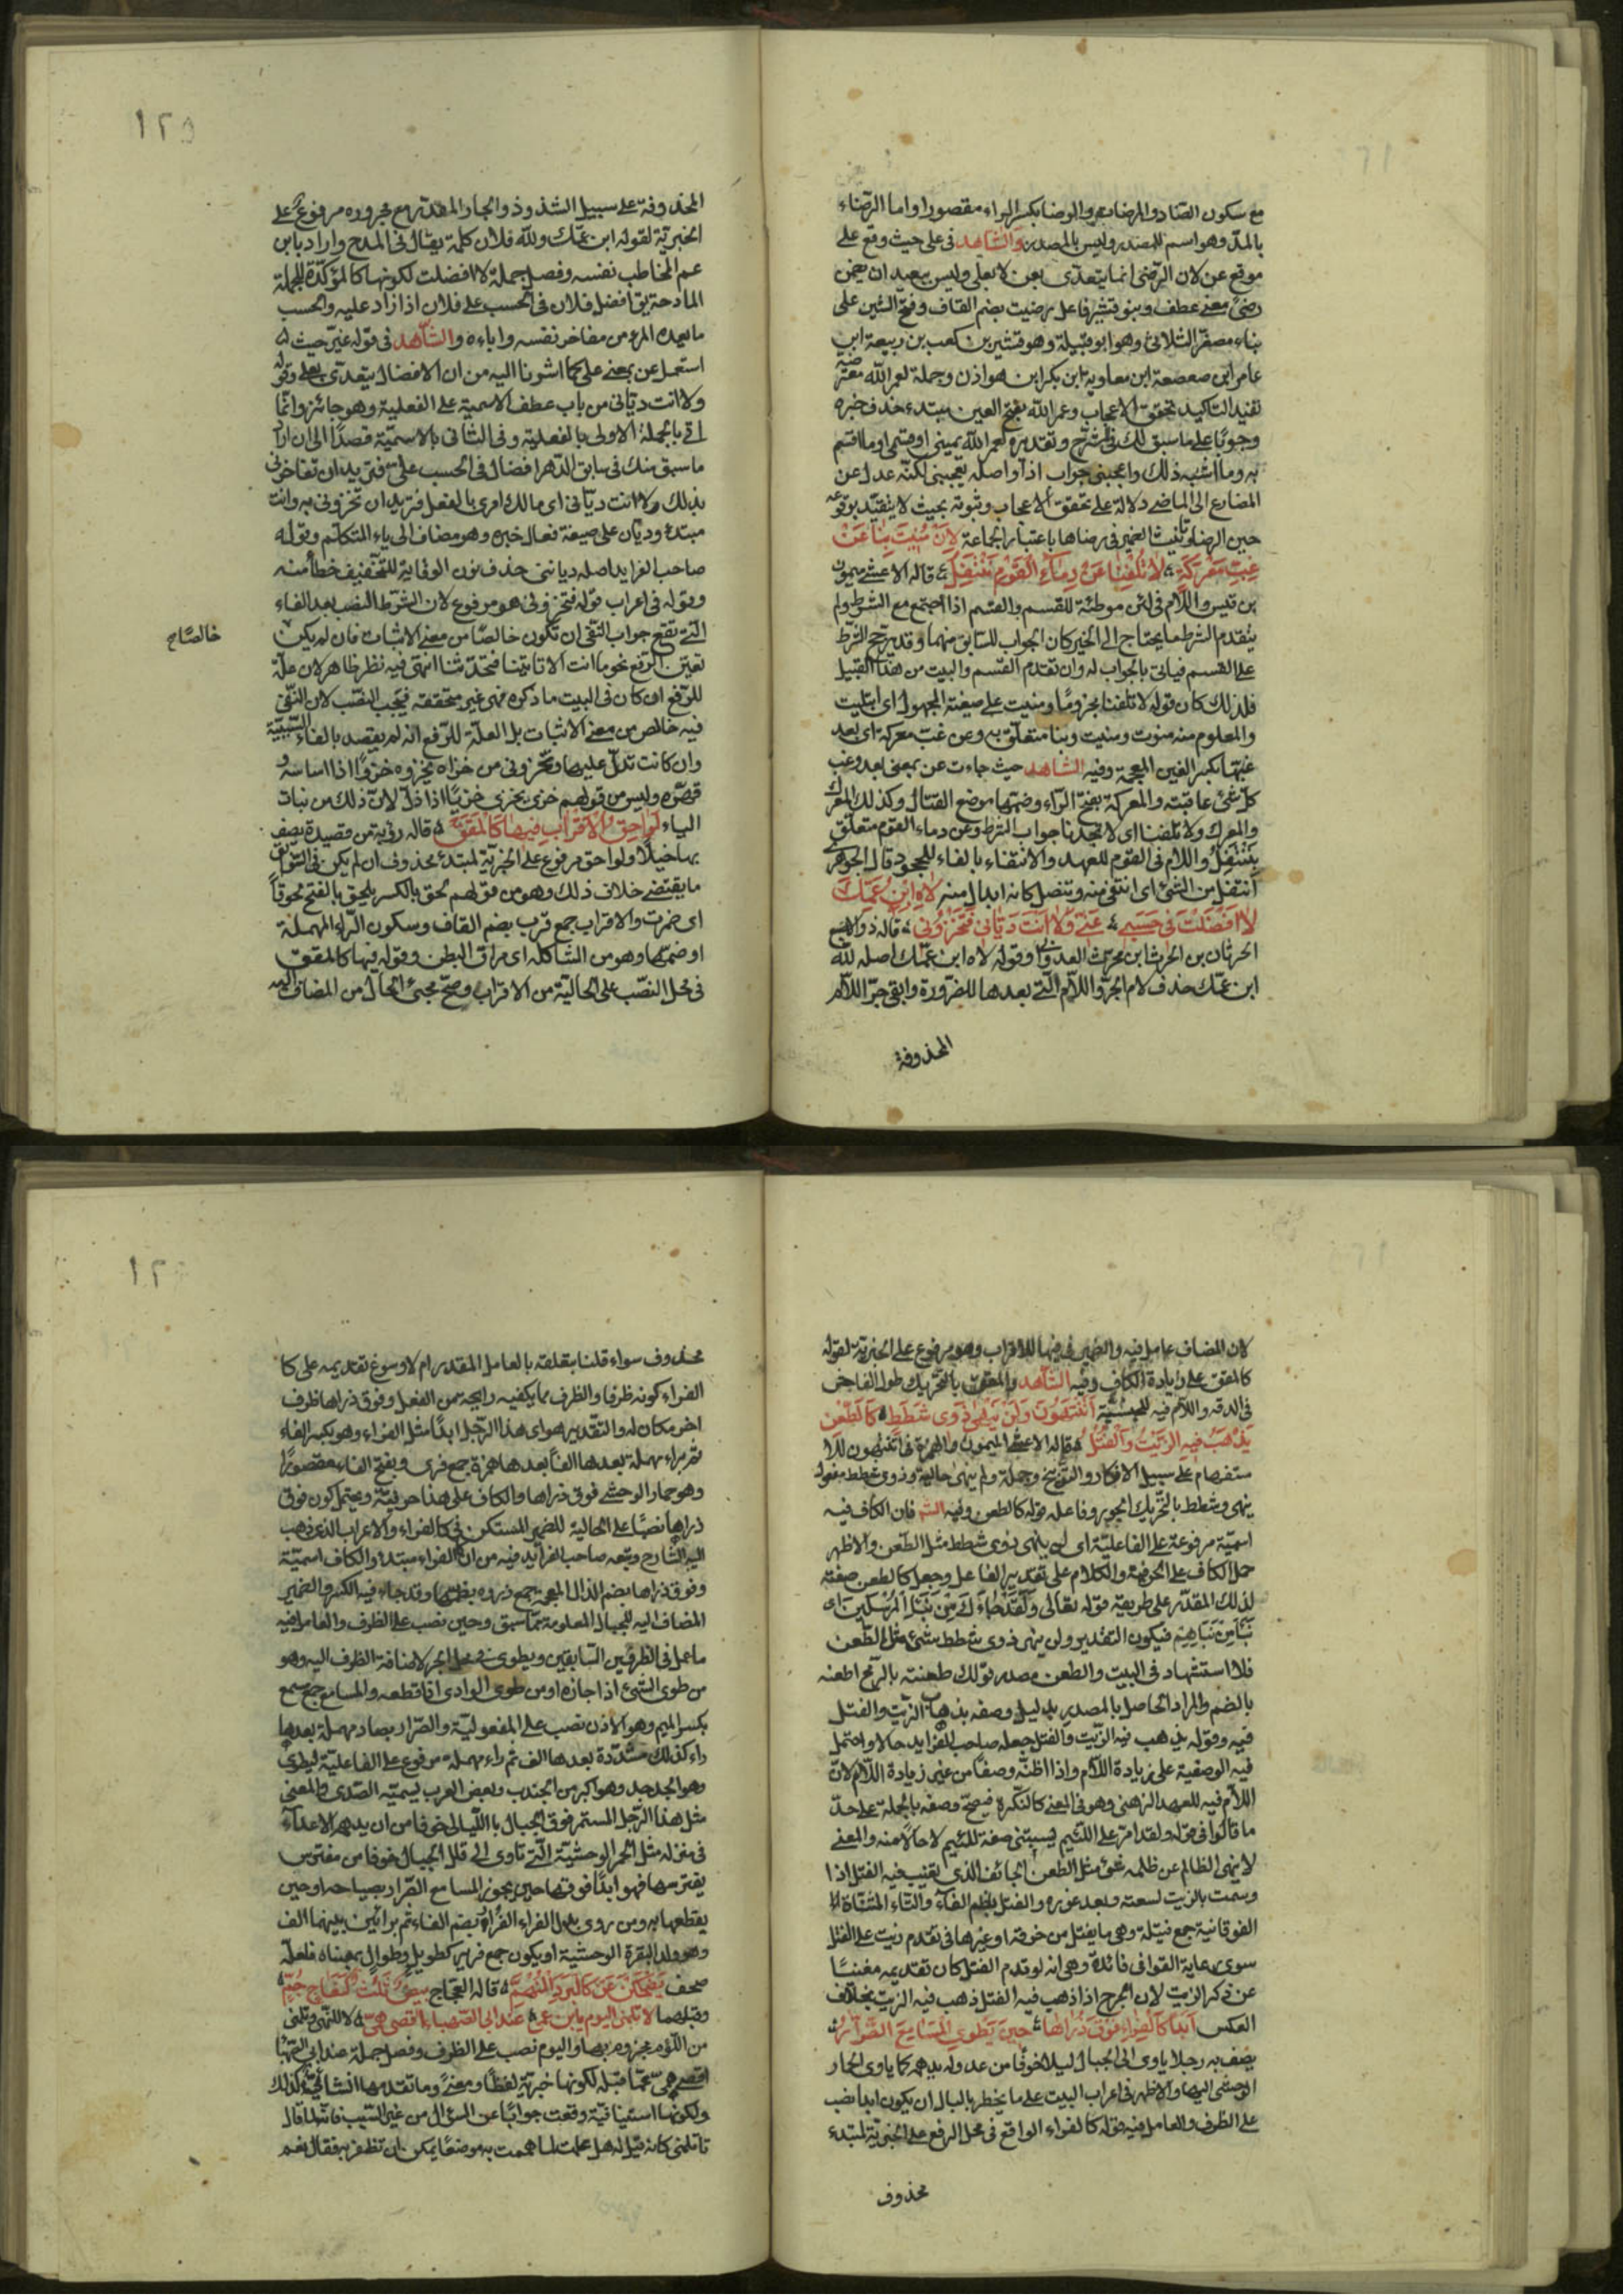 مع سكون الضاد والمرضات والرضا بكسر الراء مقصورا واما الرضاء
بالمد وهو اسم للمصدر وليس بالمصدر والشاهد فى على حيث وقع على
موقع عن لان الرضى انما يتعدى بعن لا بعلى وليس ببعيد ان يضمن
رضى معنى عطف وبنو قشير فاعل رضيت بضم القاف وفتح الشين على
بناء مصغر الثلاثى وهو ابو قبيلة وهو قشير بن كعب بن ربيعة ابن
عامر ابن صعصعة ابن معاوية ابن بكر ابن هوازن وجملة لعمر الله معترضة
تفيد التاكيد بتحقق الاعجاب وعمر الله بفتح العين مبتدء حذف خبره
وجوبا على ما سبق لك وتقديره لعمر الله يمينى او قسمى او ما اقسم
به وما اشبه ذلك واعجبنى جواب اذا واصله يعجبنى لكنه عدل عن
المضارع الى الماضى دلالة على تحقق الاعجاب وثبوته بحيث لا يتقيد بوقوعه
حين الرضا وتانيث الضمير فى رضاها باعتبار الجماعة لَئِنْ مُنِيتَ بِنَا عَنْ
غِبِّ مَعْرَكَةٍ لَا تُلْفِنَا عَنْ دِمَاءِ الْقَوْمِ نَنْتَفِلُ قاله الاعشى ميمون
بن قيس واللام فى لئن موطئة للقسم والقسم اذا اجتمع مع الشرط ولم
يتقدم الشرط ما يحتاج الى الخبر كان الجواب للسابق منهما وقد يرجح الشرط
على القسم فياتى بالجواب له وان تقدم القسم والبيت من هذا القبيل
فلذلك كان قوله لا تلفنا مجزوما ومنيت على صيغة المجهول اى ابتليت
والمعلوم منه منوت ومنيت وبنا متعلق به وعن غب معركة اى بعد
غبتها بكسر الغين المعجمة وفيه الشاهد حيث جاءت عن بمعنى بعد وغب
كل شئ عاقبته والمعركة بفتح الراء وضمها موضع القتال وكذلك المعرك
والمعرك ولا تلفنا اى لا تجدنا جواب الشرط وعن دماء القوم متعلق
بننتفل واللام فى القوم للعهد والانتفاء بالفاء للجحود قال الجوهرى
انتفل من الشئ اى انتفى منه وتنصل كانه ابدال منه لَاهِ ابْنُ عَمِّكَ
لَا أَفْضَلْتَ فِى حَسَبٍ عَنِّى وَلَا أَنْتَ دَيَّانِى فَتَخْزُونِى قاله ذو الاصبع
الحرثان بن الحرث ابن محرث العدوانى وقوله لاه ابن عمك اصله لله
ابن عمك حذف لام الجر واللام التى بعدها للضرورة وابقى جر اللام
المحذوفة
١٢٥
المحذوفة على سبيل الشذوذ والجار المقدر مع مجروره مرفوع على
الخبرية لقوله ابن عمك ولله فلان كلمة يقال فى المدح واراد بابن
عم المخاطب نفسه وفصل جملة لا افضلت لكونها كالمؤكدة للجملة
المادحة يق افضل فلان فى الحسب على فلان اذا زاد عليه والحسب
ما يعده المرء من مفاخر نفسه واباءه والشاهد فى قوله عنى حيث
استعمل عن بمعنى على كما اشرنا اليه من ان الافضال يتعدى بعلى وقوله
ولا انت ديانى من باب عطف الاسمية على الفعلية وهو جائز وانما
اتى بالجملة الاولى بالفعلية وفى الثانى بالاسمية قصدا الى ان اراد
ما سبق منك فى سابق الدهر افضال فى الحسب على فتريد ان تفاخرنى
بذلك ولا انت ديانى اى مالك امرى بالفعل فتريد ان تخزونى به وانت
مبتدء وديان على صيغة فعال خبره وهو مضاف الى ياء المتكلم وقوله
صاحب الفرايد اصله دياننى حذف نون الوقاية للتخفيف خطأ منه
وقوله فى اعراب قوله فتخزونى هو مرفوع لان الشرط النصب بعد الفاء
التى تقع جواب النفى ان تكون خالصا من معنى الاثبات فان لم يكن
خالصا صح
تعين الرفع نحو ما انت الا تاتينا فتحدثنا انتهى فيه نظر ظاهر لان علة
للرفع ان كان فى البيت ما ذكره فهى غير متحققة فيجب النصب لان النفى
فيه خالص من معنى الاثبات بل العلة للرفع انه لم يقصد بالفاء السببية
وان كانت تدل عليها وتخزونى من خزاه يخزوه خزوا اذا ساسه و
قهره وليس من قولهم خزى يخزى خزيا اذا ذل لان ذلك من نبات
الياء لَوَاحِقُ الْأَقْرَابِ فِيهَا كَالْمَقَقْ قاله رؤبة من قصيدة يصف
بها خيلا ولواحق مرفوع على الخبرية لمبتدء محذوف ان لم يكن فى السوابق
ما يقتضى خلاف ذلك وهو من قولهم لحق بالكسر يلحق بالفتح لحوقا
اى ضمرت والاقراب جمع قرب بضم القاف وسكون الراء المهملة
او ضمها وهو من الشاكلة اى مراق البطن وقوله فيها كالمقق
فى محل النصب على الحالية من الاقراب وصح مجئ الحال من المضاف اليه
لان المضاف عامل فيه والضمير فى فيها للاقراب وهو مرفوع على الخبرية لقوله
كالمقق على زيادة الكاف وفيه الشاهد والمقق بالتحريك طول الفاحش
فى الدقة واللام فيه للجنسية أَتَنْتَهُونَ وَلَنْ يَنْهَى ذَوِى شَطَطٍ كَالطَّعْنِ
يَذْهَبُ فِيهِ الزَّيْتُ وَالْفُتُلُ قاله الاعشى الميمون والهمزة فى اتنتهون للا
ستفهام على سبيل الانكار والتوبيخ وجملة ولم ينهى حالية وذوى شطط مفعول
ينهى وشطط بالتحريك الجور وفاعله قوله كالطعن وفيه الشه فان الكاف فيه
اسمية مرفوعة على الفاعلية اى لن ينهى ذوى شطط مثل الطعن والاظهر
حمل الكاف على الحرفية والكلام على تقدير الفاعل وجعل كالطعن صفة
لذلك المقدر على طريقة قوله تعالى وَلَقَدْ جَاءَكَ مِنْ نَبَإِ الْمُرْسَلِينَ اى
نَبَأٌ مِنْ نَبَإِهِمْ فيكون التقدير ولن ينهى ذوى شطط شئ مثل الطعن
فلا استشهاد فى البيت والطعن مصدر قولك طعنته بالرمح اطعنه
بالضم والمراد الحاصل بالمصدر بدليل وصفه بذهاب الزيت والفتل
فيه وقوله يذهب فيه الزيت والفتل جعله صاحب الفرايد حالا واحتمل
فيه الوصفية على زيادة اللام واذا اظنه وصفا من غير زيادة اللام لان
اللام فيه للعهد الذهنى وهو فى المعنى كالنكرة فيصح وصفه بالجملة على حد
ما قالوا فى قوله ولقد امر على اللئيم يسبنى صفة للئيم لا حالا منه والمعنى
لا ينهى الظالم عن ظلمه شئ مثل الطعن الجائف الذى يغيب فيه الفتل اذا
وسمت بالزيت لسعته وبعد غوره والفتل بضم الفاء والتاء المثناة
الفوقانية جمع فتيلة وهى ما يفتل من خرقة او غيرها فى تقدم زيت على الفتل
سوى رعاية القوافى فائدة وهى انه لو قدم الفتل كان تقديمه مغنيا
عن ذكر الزيت لان الجرح اذا ذهب فيه الفتل ذهب فيه الزيت بخلاف
العكس أَبَدًا كَالْفِرَاءِ فَوْقَ ذُرَاهَا حِينَ يَطْوِى الْمَسَامِعَ الصَّرَّارُ
يصف به رجلا ياوى الى الجبال ليلا خوفا من عدوله يدهمه كما ياوى الحمار
الوحشى اليها والاظهر فى اعراب البيت على ما يخطر بالبال ان يكون ابدا نصب
على الظرف والعامل فيه قوله كالفراء الواقع فى محل الرفع على الخبرية لمبتدء
محذوف
١٢
محذوف سواء قلنا بتعلقه بالعامل المقدر ام لا وسوغ تقديمه على كا
الفراء كونه ظرفا والظرف مما يكفيه رايحة من الفعل وفوق ذراها ظرف
اخر مكان له والتقدير هو اى هذا الرجل ابدا مثل الفراء وهو بكسر الفاء
ثم براء مهملة بعدها الفا بعدها همزة جمع فرى وبفتح الفاء مقصورا
وهو حمار الوحشى فوق ذراها والكاف على هذا حرفية ويحتمل كون فوق
ذراها نصبا على الحالية للضمير المستكن فى كالفراء والاعراب الذى ذهب
اليه الشارح وتبعه صاحب الفرايد فيه من ان الفراء مبتدء والكاف اسمية
وفوق ذراها بضم الذال المعجمة جمع ذروه بضمها وقد جاء فيه الكسر والضمير
المضاف اليه للجبال المعلومة مما سبق وحين نصب على الظرف والعامل فيه
ما عمل فى الظرفين السابقين ويطوى فى محل الجر لاضافة الظرف اليه وهو
من طوى الشئ اذا جازه او من طوى الوادى اذا قطعه والمسامع جمع مسمع
بكسر الميم وهو الاذن نصب على المفعولية والصرار بصاد مهملة بعدها
راء كذلك مشددة بعدها الف ثم راء مهملة مرفوع على الفاعلية ليطوى
وهو الجدجد وهو اكبر من الجندب وبعض العرب يسميه الصدى والمعنى
مثل هذا الرجل المستمر فوق الجبال بالليالى خوفا من ان يدهمه الاعداء
فى منزله مثل الحمر الوحشية التى تاوى الى قلل الجبال خوفا من مفترس
يفترسها فهو ابدا فوقها حين يجوز المسامع الصرار بصياحه او حين
يقطعها به ومن روى بدل الفراء الفُرار بضم الفاء ثم برائين بينهما الف
وهو ولد البقرة الوحشية او يكون جمع فرير كطويل وطوال بمعناه فلعله
صحف يَضْحَكْنَ عَنْ كَالْبَرَدِ الْمُنْهَمِّ قاله العجاج بِيضٌ ثَلَاثٌ كَنِعَاجٍ جُمِّ
وقبلهما لَا تَلُمْنِى الْيَوْمَ يَا ابْنَ عَمِّى عِنْدَ أَبِى الصَّهْبَاءِ أَقْصَى هَمِّى لا للنهى وتلمنى
من اللوم مجزوم بها واليوم نصب على الظرف وفصل جملة عند ابى الصهباء
اقصى همى عما قبله لكونها خبرية لفظا ومعنى وما تقدمها انشائية كذلك
ولكونها استينافية وقعت جوابا عن السؤال من غير السبب فانه لما قال
لا تلمنى كانه قيل له هل علمت لما هممت به موضعا يمكن ان تظفر به فقال نعم